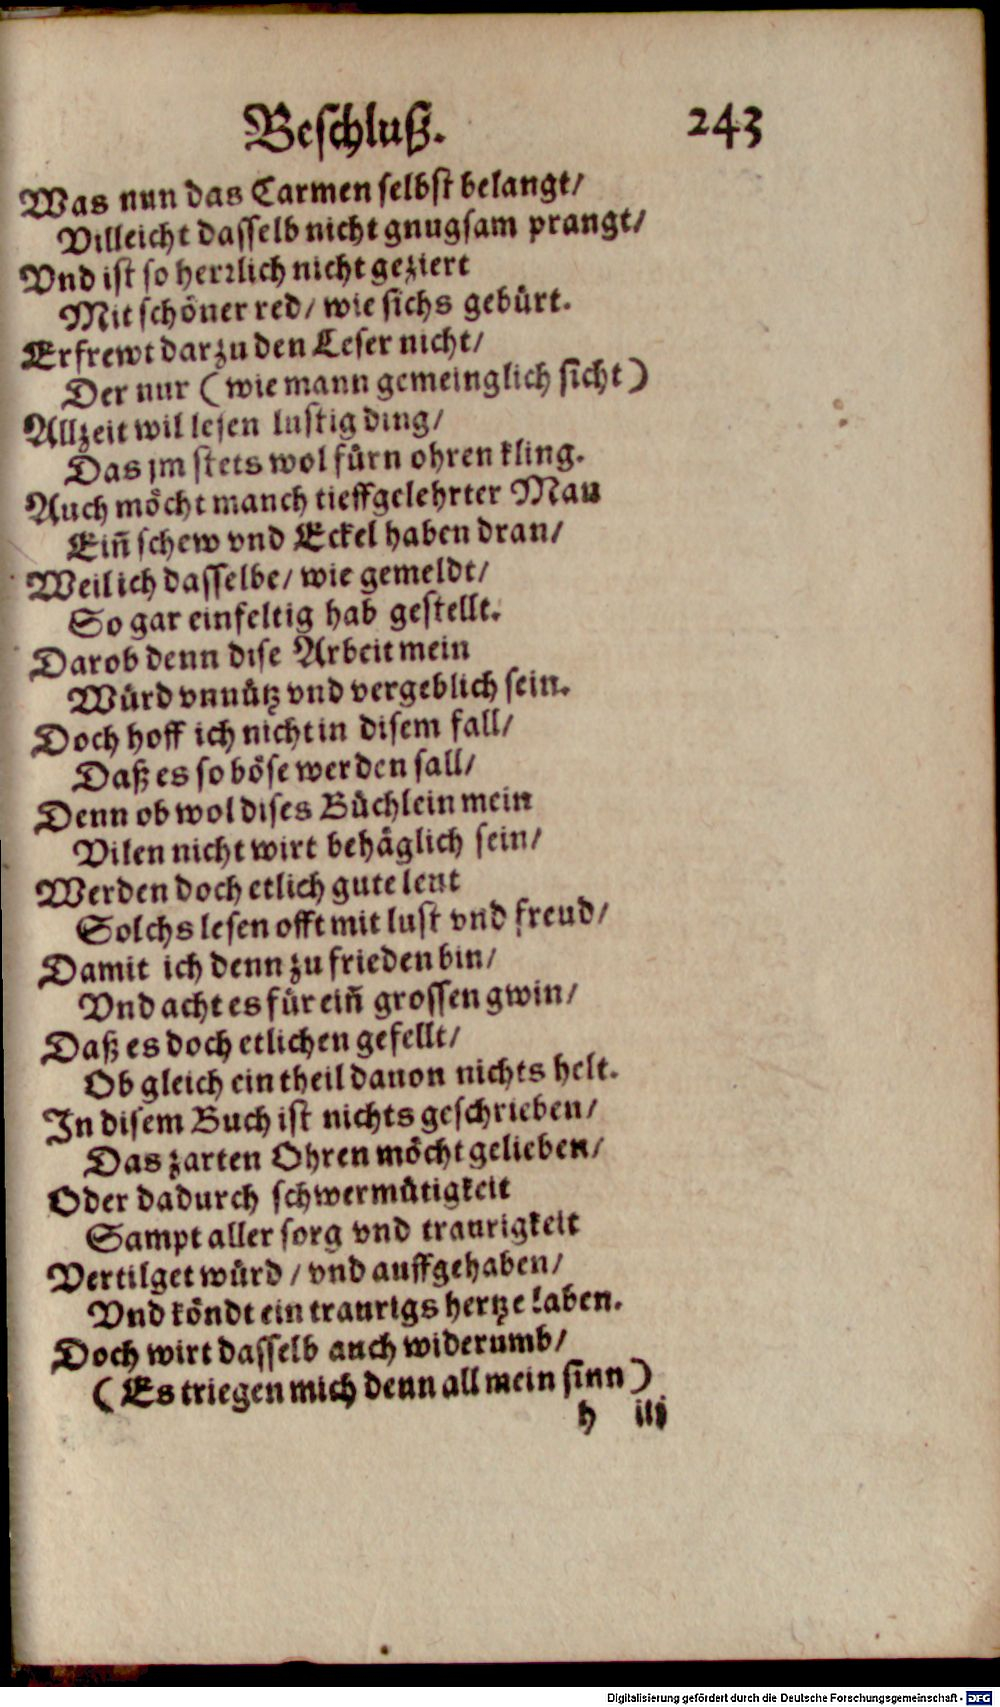 Beschluß. 243
Was nun das Carmen selbst belangt/
Villeicht dasselb nicht gnugsam prangt/
Vnd ist so herꝛlich nicht geziert
Mit schöner red/ wie sichs gebürt.
Erfrewt darzu den Leser nicht/
Der nur (wie mann gemeinglich sicht)
Allzeit wil lesen lustig ding/
Das jm stets wol fürn ohren kling.
Auch möcht manch tieffgelehrter Man
Eiñ schew vnd Eckel haben dran/
Weil ich dasselbe/ wie gemeldt/
So gar einfeltig hab gestellt.
Darob denn dise Arbeit mein
Würd vnnütz vnd vergeblich sein.
Doch hoff ich nicht in disem fall/
Daß es so böse werden sall/
Denn ob wol dises Büchlein mein
Vilen nicht wirt behäglich sein/
Werden doch etlich gute leut
Solchs lesen offt mit lust vnd freud/
Damit ich denn zu frieden bin/
Vnd acht es für eiñ grossen gwin/
Daß es doch etlichen gefellt/
Ob gleich ein theil dauon nichts helt.
In disem Buch ist nichts geschrieben/
Das zarten Ohren möcht gelieben/
Oder dadurch schwermütigkeit
Sampt aller sorg vnd traurigkeit
Vertilget würd/ vnd auffgehaben/
Vnd köndt ein traurigs hertze laben.
Doch wirt dasselb auch widerumb/
(Es triegen mich denn all mein sinn)
h iij
Digitalisierung gefördert durch die Deutsche Forschungsgemeinschaft - DFG